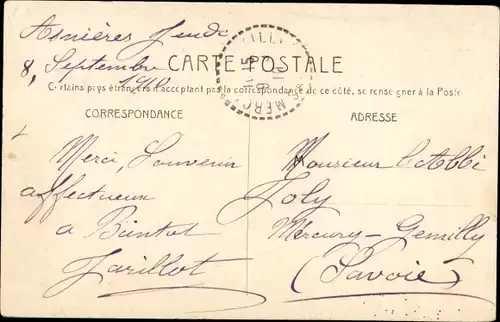 Asnières Jeudi
8, Septembre
1910
CARTE POSTALE
Certains pays étrangers n'acceptant pas la correspondance de ce côté, se renseigner à la Poste
CORRESPONDANCE
ADRESSE
Merci, Souvenir
affectueux
a Bientot
Jarillot
M
Monsieur l'Abbé
Joly
Mercury-Gemilly
(Savoie)
MERC
ILLY